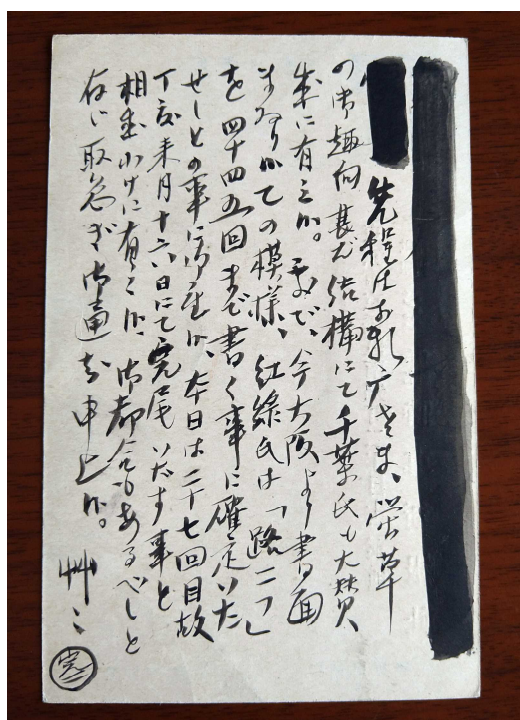 先程は失礼、广生ま、螢草
の御趣向甚だ結構にて千葉氏も大賛
成に有之候。就て、今大阪より書面
まゐり候ての模様、紅緑氏は「路二つ」
を四十四五回まで書く事に確定いた
せしとの事に御座候、本日は二十七回目故
丁度来月十六日にて完尾いたす事と
相成候わけに有之候、御都合もあるべしと
存じ取急ぎ御通知申上候。
艸々